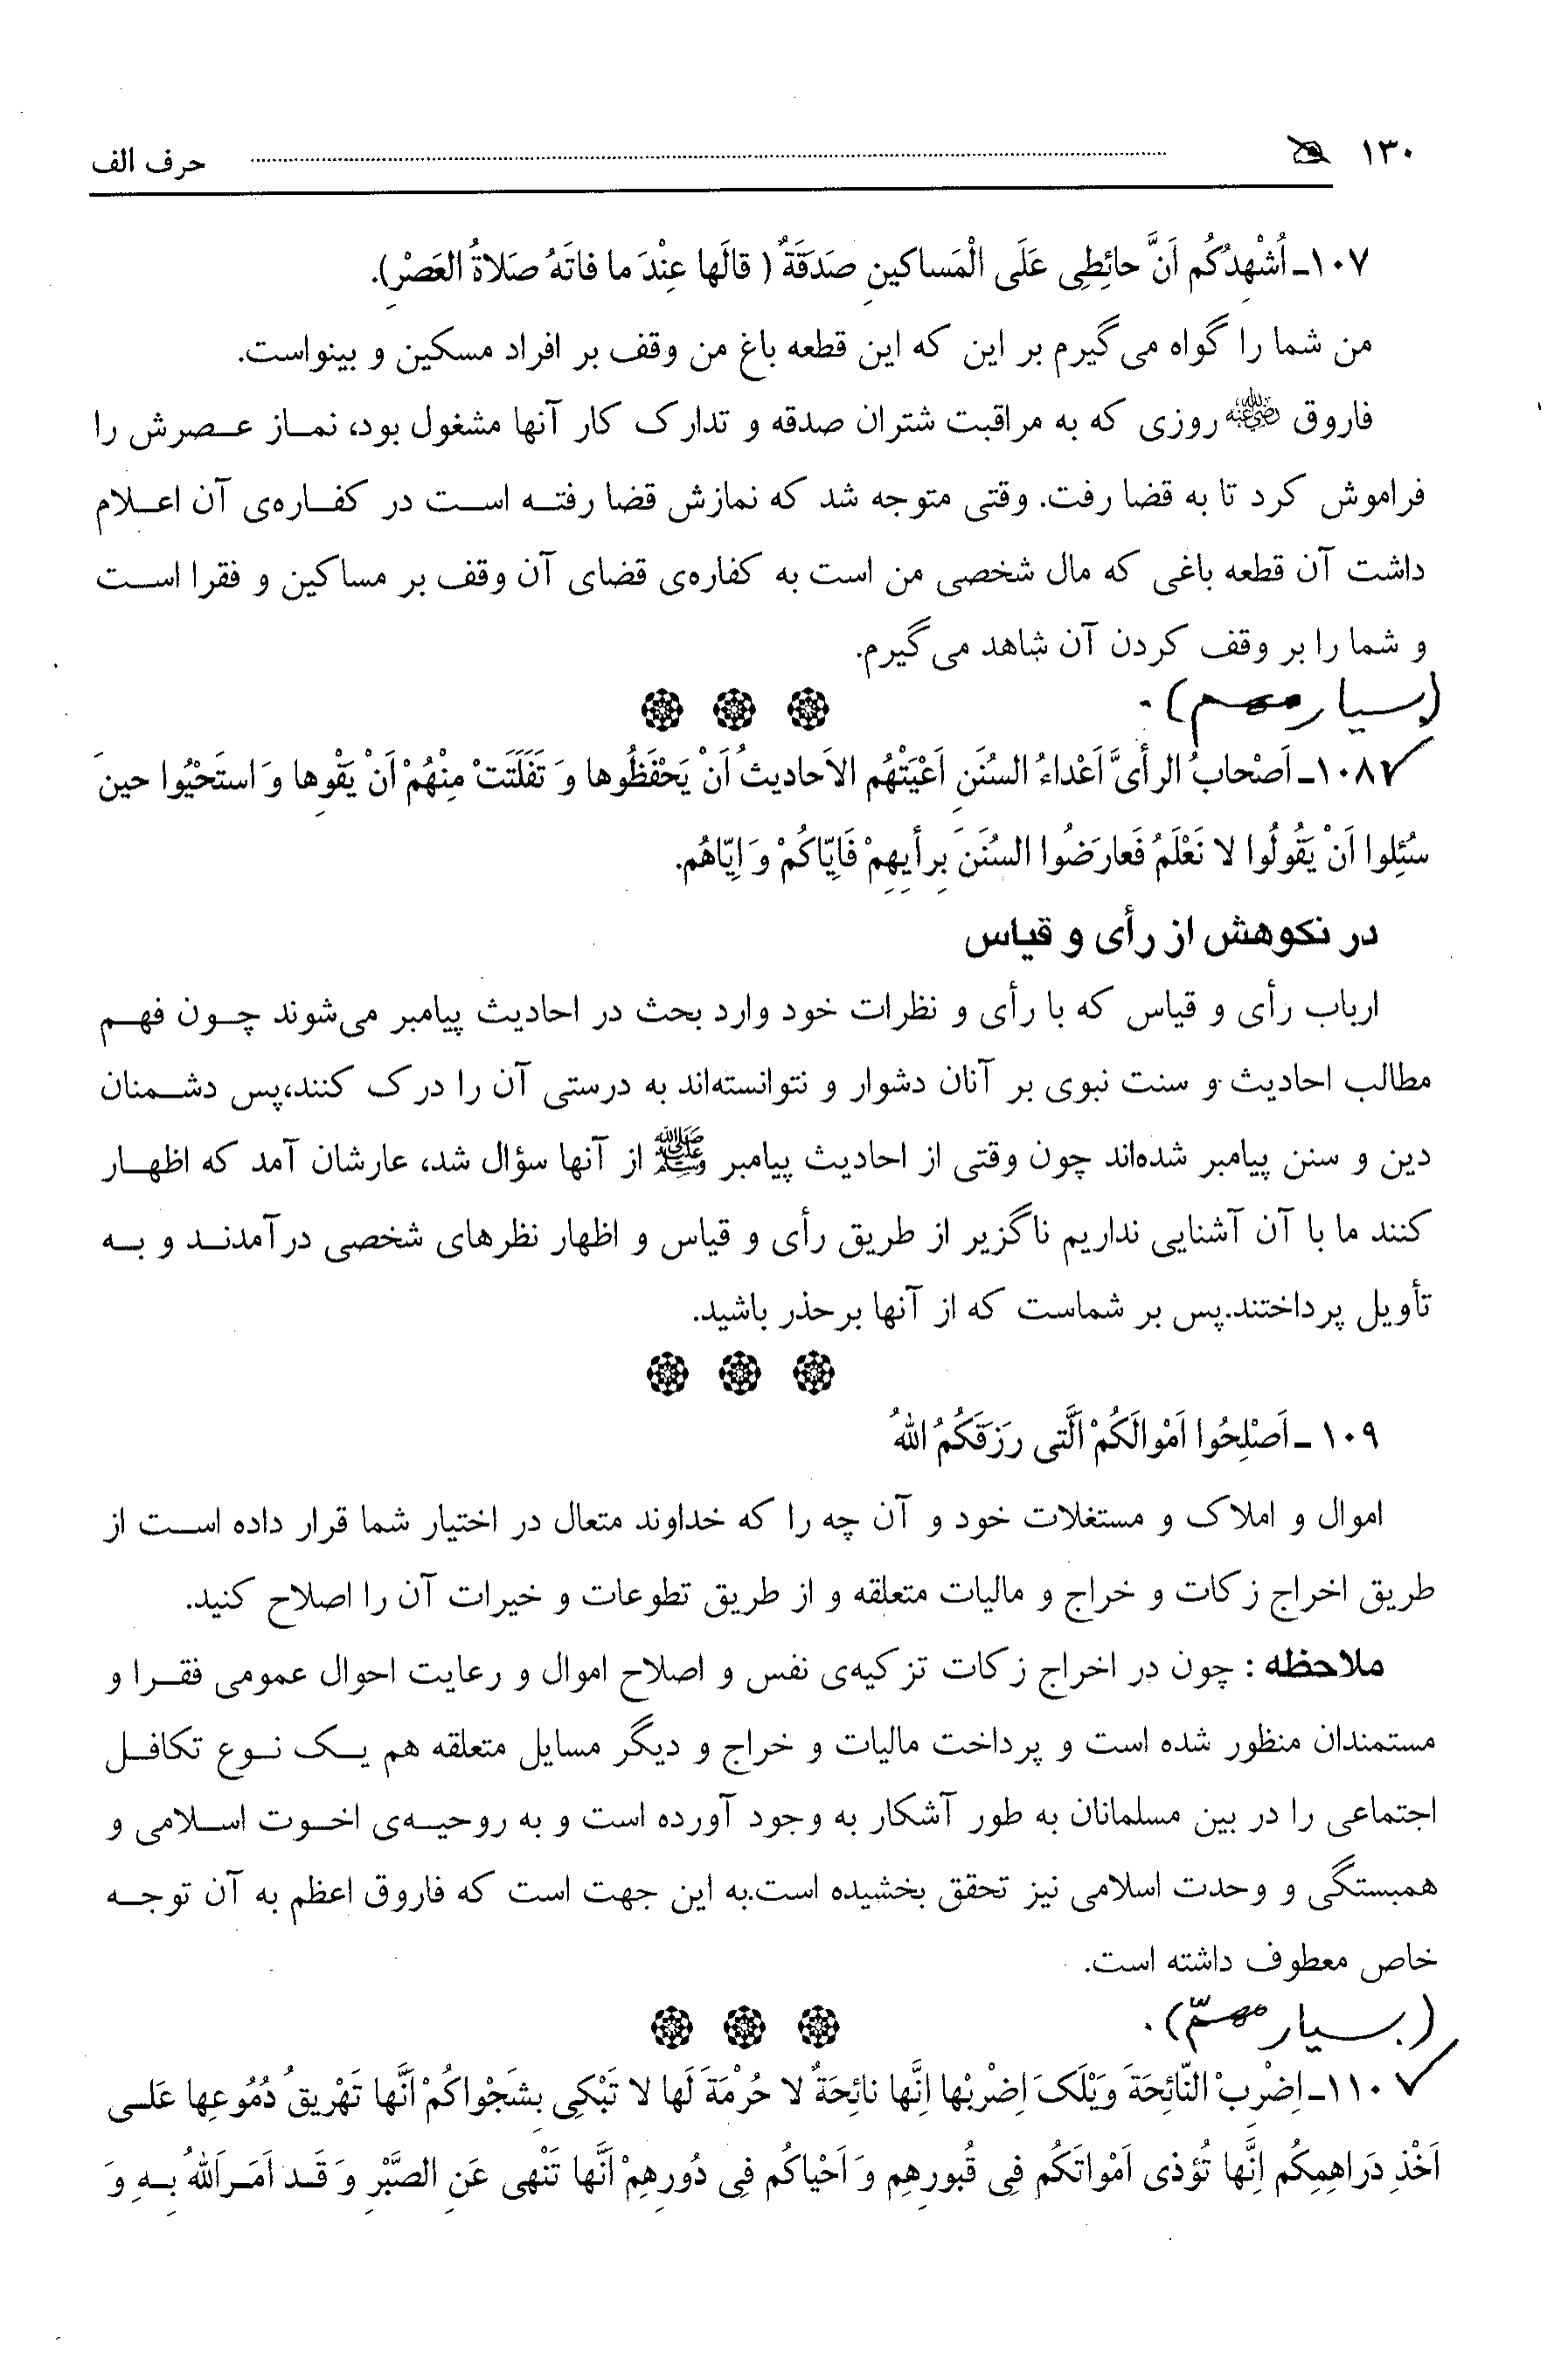 ۱۳۰ حرف الف
۱۰۷ـ اُشْهِدُكُم اَنَّ حائِطِی عَلَی الْمَساكینِ صَدَقَةٌ ( قالَها عِنْدَ ما فاتَهُ صَلاةُ العَصْرِ).
من شما را گواه می‌گیرم بر این که این قطعه باغ من وقف بر افراد مسکین و بینواست.
فاروق رضی الله عنه روزی که به مراقبت شتران صدقه و تدارک کار آنها مشغول بود، نمـاز عـصرش را
فراموش کرد تا به قضا رفت. وقتی متوجه شد که نمازش قضا رفتـه اسـت در کفـاره‌ی آن اعـلام
داشت آن قطعه باغی که مال شخصی من است به کفاره‌ی قضای آن وقف بر مساکین و فقرا اسـت
و شما را بر وقف کردن آن شاهد می‌گیرم.
(بسیار مهم).
۱۰۸ـ اَصْحابُ الرأیَّ اَعْداءُ السُنَنِ اَعْیَتْهُم الاَحادیثُ اَنْ یَحْفَظُوها وَ تَفَلَتَتْ مِنْهُمْ اَنْ یَقْوِها وَ استَحْیُوا حینَ
سُئِلوا اَنْ یَقُولُوا لا نَعْلَمُ فَعارَضُوا السُنَنَ بِرأیِهِمْ فَاِیّاكُمْ وَ اِیّاهُم.
در نکوهش از رأی و قیاس
ارباب رأی و قیاس که با رأی و نظرات خود وارد بحث در احادیث پیامبر می‌شوند چـون فهـم
مطالب احادیث و سنت نبوی بر آنان دشوار و نتوانسته‌اند به درستی آن را درک کنند،پس دشـمنان
دین و سنن پیامبر شده‌اند چون وقتی از احادیث پیامبر ﷺ از آنها سؤال شد، عارشان آمد که اظهـار
کنند ما با آن آشنایی نداریم ناگزیر از طریق رأی و قیاس و اظهار نظرهای شخصی درآمدنـد و بـه
تأویل پرداختند.پس بر شماست که از آنها برحذر باشید.
۱۰۹ ـ اَصْلِحُوا اَمْوالَكُمْ اَلَّتی رَزَقَكُمُ اللهُ
اموال و املاک و مستغلات خود و آن چه را که خداوند متعال در اختیار شما قرار داده اسـت از
طریق اخراج زکات و خراج و مالیات متعلقه و از طریق تطوعات و خیرات آن را اصلاح کنید.
ملاحظه : چون در اخراج زکات تزکیه‌ی نفس و اصلاح اموال و رعایت احوال عمومی فقـرا و
مستمندان منظور شده است و پرداخت مالیات و خراج و دیگر مسایل متعلقه هم یـک نـوع تکافـل
اجتماعی را در بین مسلمانان به طور آشکار به وجود آورده است و به روحیـه‌ی اخـوت اسـلامی و
همبستگی و وحدت اسلامی نیز تحقق بخشیده است.به این جهت است که فاروق اعظم به آن توجـه
خاص معطوف داشته است.
(بسیار مهمّ).
۱۱۰ـ اِضْرِبْ النّائِحَةَ وَیْلَکَ اِضْرِبْها اِنَّها نائِحَةٌ لا حُرْمَةَ لَها لا تَبْكِی بِشَجْواكُمْ اَنَّها تَهْرِیقُ دُمُوعِها عَلـی
اَخْذِ دَراهِمِكُم اِنَّها تُؤذی اَمْواتَكُم فِی قُبورِهِم وَ اَحْیاكُم فِی دُورِهِمْ اَنَّها تَنْهی عَنِ الصَّبْرِ وَ قَـد اَمَـرَاللهُ بِـهِ وَ